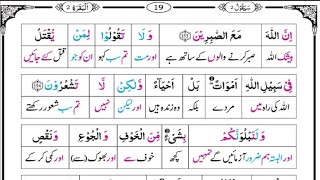 سَيَقُوْلُ 2 19 اَلْبَقَرَة 2
اِنَّ اللّٰهَ مَعَ الصّٰبِرِيْنَ وَلَا تَقُوْلُوْا لِمَنْ يُّقْتَلُ
بیشک اللہ صبر کرنے والوں کے ساتھ ہے اور مت تم سب کہو ان کو جو قتل کئے جائیں
فِيْ سَبِيْلِ اللّٰهِ اَمْوَاتٌ ؕ بَلْ اَحْيَآءٌ وَّلٰكِنْ لَّا تَشْعُرُوْنَ
اللہ کی راہ میں مردے وہ زندہ ہیں اور لیکن نہیں تم سب شعور رکھتے
وَلَنَبْلُوَنَّكُمْ بِشَيْءٍ مِّنَ الْخَوْفِ وَالْجُوْعِ وَنَقْصٍ
اور البتہ ہم ضرور آزمائیں گے تمہیں کچھ خوف سے اور بھوک (سے) اور کمی کر کے